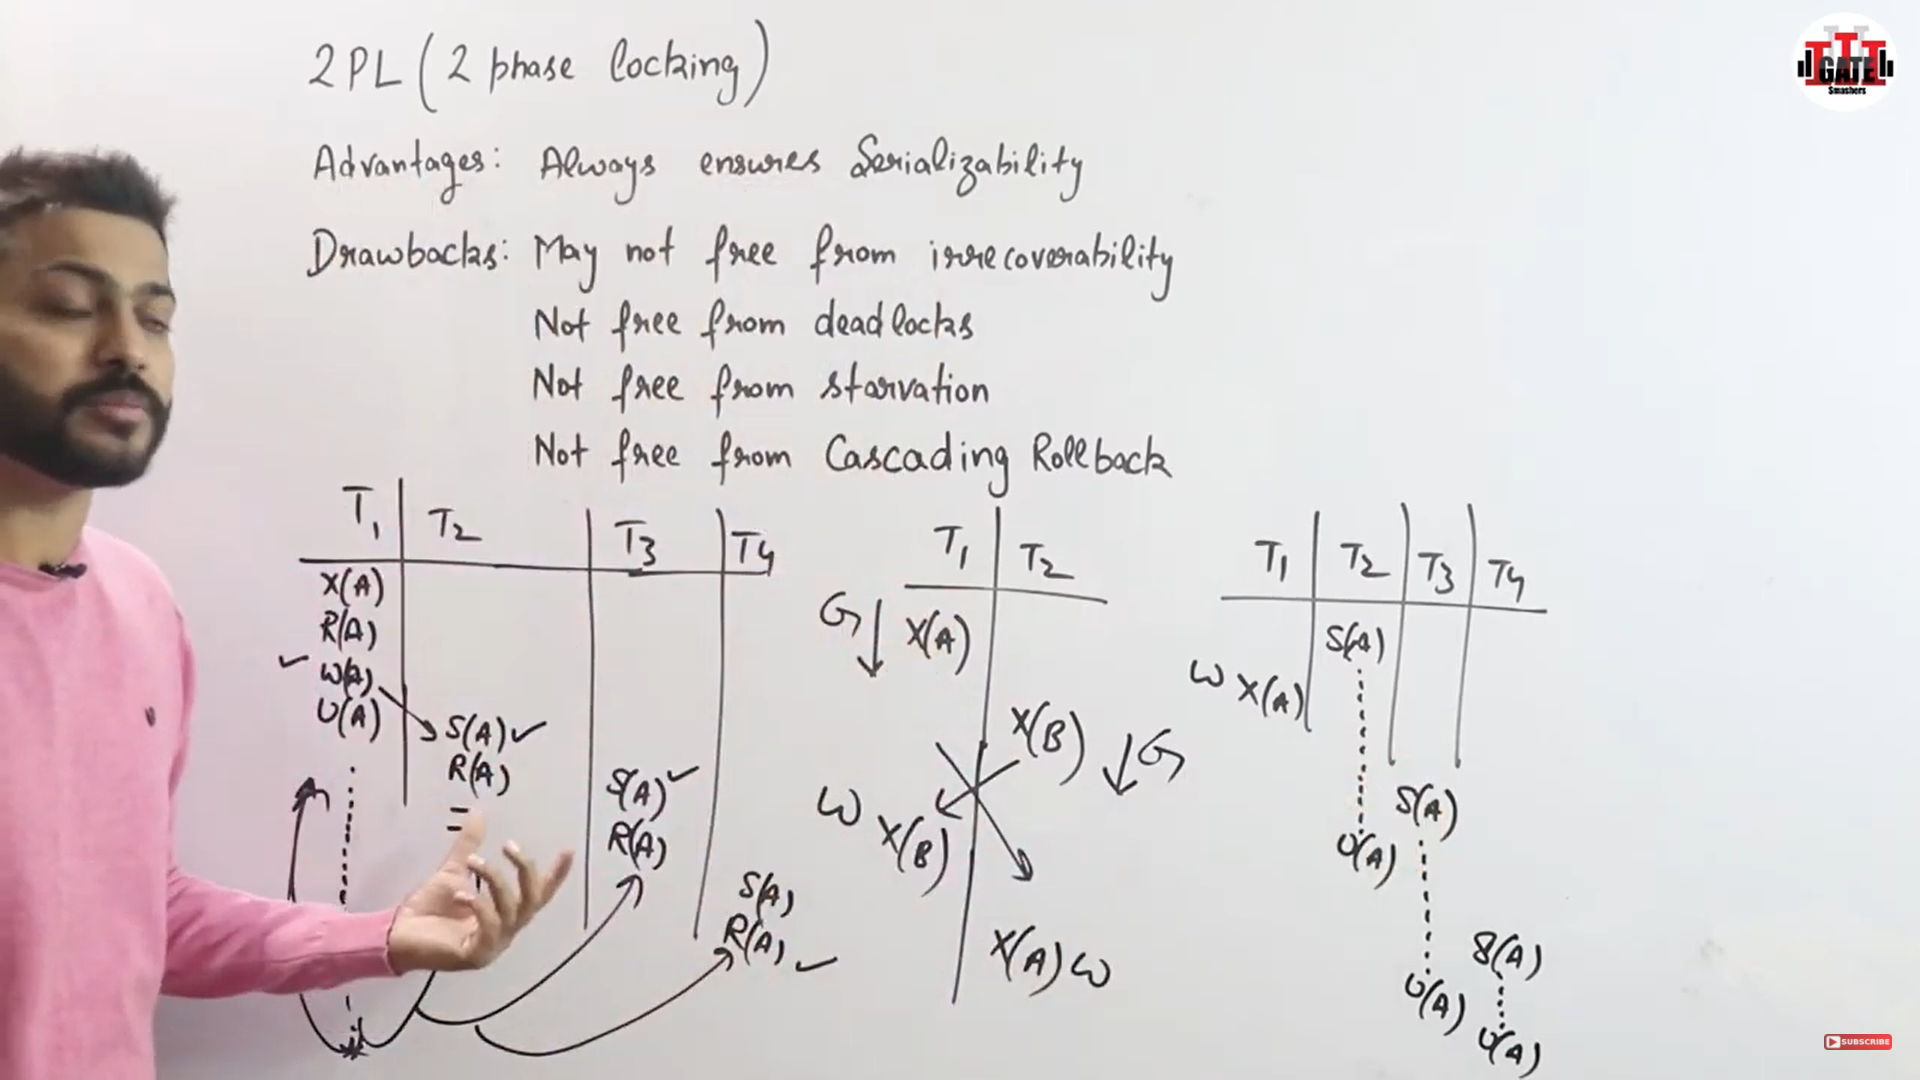 2PL (2 phase locking)
Advantages: Always ensures Serializability
Drawbacks: May not free from irrecoverability
Not free from deadlocks
Not free from starvation
Not free from Cascading Rollback
T1 T2 T3 T4
X(A)
R(A)
W(A)
U(A)
S(A)
R(A)
S(A)
R(A)
S(A)
R(A)
T1 T2
G X(A)
X(B) G
W X(B)
X(A) W
T1 T2 T3 T4
S(A)
W X(A)
S(A)
U(A)
S(A)
U(A)
U(A)
GATE
Smashers
SUBSCRIBE